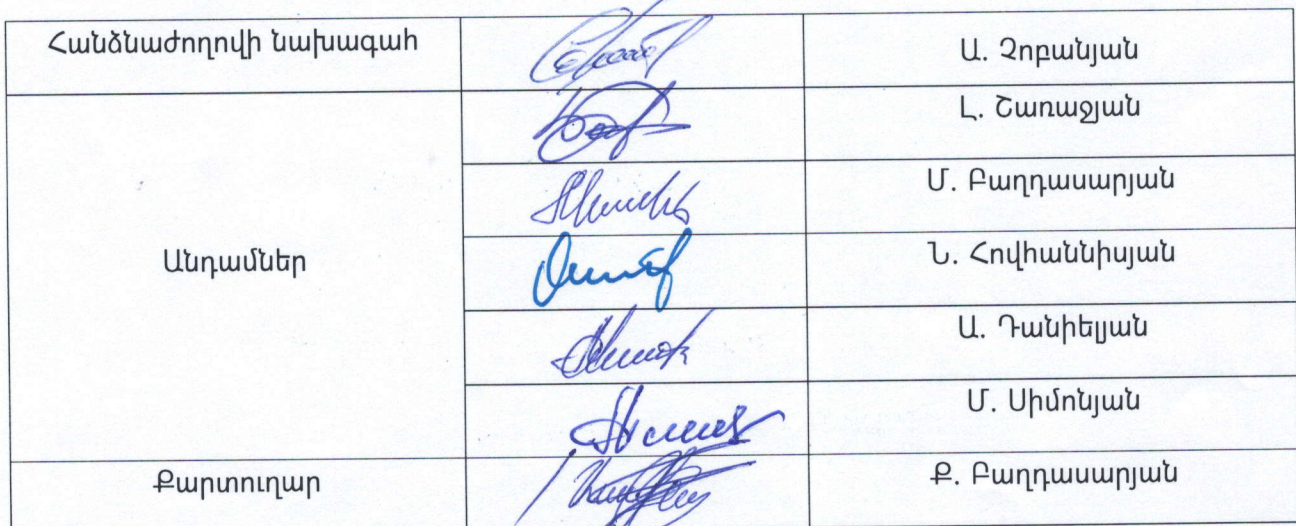 Հանձնաժողովի նախագահ
Ա. Չոբանյան
Լ. Շառաջյան
Մ. Բաղդասարյան
Անդամներ
Ն. Հովհաննիսյան
Ա. Դանիելյան
Մ. Սիմոնյան
Քարտուղար
Ք. Բաղդասարյան